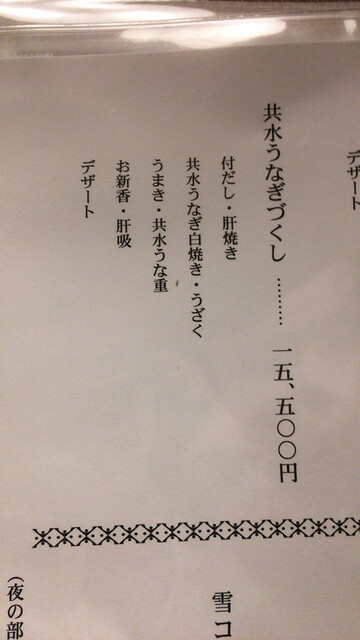 デザート
共水うなぎづくし ………… 一五、五〇〇円
付だし・肝焼き
共水うなぎ白焼き・うざく
うまき・共水うな重
お新香・肝吸
デザート
雪コ
（夜の部